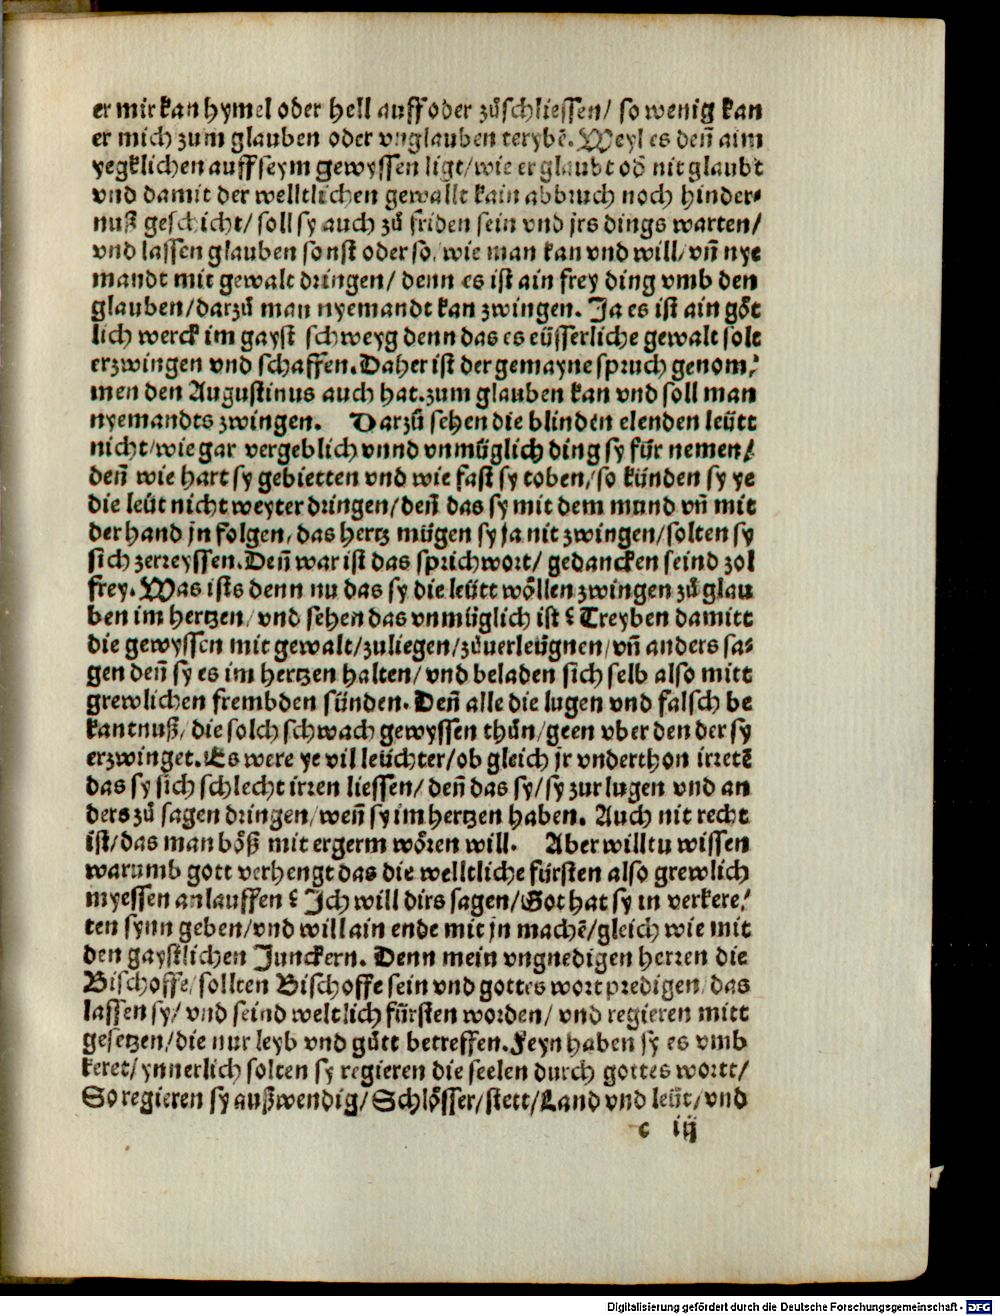 er mir kan hymel oder hell auff oder zůschliessen/ so wenig kan
er mich zum glauben oder vnglauben terybē. Weyl es deñ aim
yegklichen auff seym gewyssen ligt/wie er glaubt od nit glaubt
vnd damit der welltlichen gewallt kain abbruch noch hinder⸗
nuß geschicht/ soll sy auch zů friden sein vnd jrs dings warten/
vnd lassen glauben sonst oder so, wie man kan vnd will/ vñ nye
mandt mit gewalt dringen/ denn es ist ain frey ding vmb den
glauben/darzů man nyemandt kan zwingen. Ja es ist ain göt
lich werck im gayst schweyg denn das es eüsserliche gewalt solt
erzwingen vnd schaffen. Daher ist der gemayne spruch genom⸗
men den Augustinus auch hat. zum glauben kan vnd soll man
nyemandts zwingen. Darzů sehen die blinden elenden leütt
nicht/wie gar vergeblich vnnd vnmüglich ding sy für nemen/
deñ wie hart sy gebietten vnd wie fast sy toben/so künden sy ye
die leüt nicht weyter dringen/deñ das sy mit dem mund vñ mit
der hand jn folgen, das hertz mügen sy ja nit zwingen/solten sy
sich zerreyssen. Deñ war ist das sprichwort/ gedancken seind zol
frey. Was ists denn nu das sy die leütt wöllen zwingen zů glau
ben im hertzen/ vnd sehen das vnmüglich ist? Treyben damitt
die gewyssen mit gewalt/zuliegen/zůuerleügnen/vñ anders sa⸗
gen deñ sy es im hertzen halten/ vnd beladen sich selb also mitt
grewlichen frembden sünden. Deñ alle die lugen vnd falsch be
kantnuß/ die solch schwach gewyssen thůn/geen vber den der sy
erzwinget. Es were ye vil leüchter/ob gleich jr vnderthon irretē
das sy sich schlecht irren liessen/ deñ das sy/sy zur lugen vnd an
ders zů sagen dringen/weñ sy im hertzen haben. Auch nit recht
ist/das man böß mit ergerm wören will. Aber willtu wissen
warumb gott verhengt das die welltliche fürsten also grewlich
myessen anlauffen? Ich will dirs sagen/Got hat sy in verkere⸗
ten synn geben/vnd will ain ende mit jn machē/gleich wie mit
den gaystlichen Junckern. Denn mein vngnedigen herren die
Bischoffe/sollten Bischoffe sein vnd gottes wort predigen/das
lassen sy/ vnd seind weltlich fürsten worden/ vnd regieren mitt
gesetzen/die nur leyb vnd gůtt betreffen. Feyn haben sy es vmb
keret/ynnerlich solten sy regieren die seelen durch gottes wortt/
So regieren sy außwendig/Schlösser/stett/Land vnd leüt/vnd
c iij
Digitalisierung gefördert durch die Deutsche Forschungsgemeinschaft - DFG